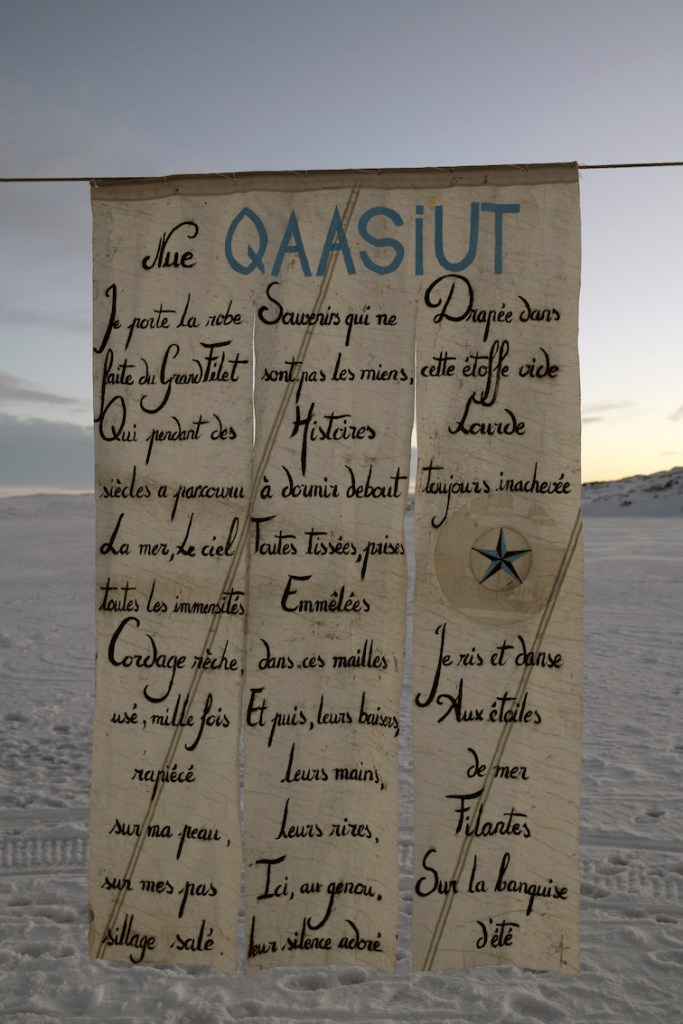 QAASiUT
Nue
Je porte la robe
faite du Grand Filet
Qui pendant des
siècles a parcouru
La mer, Le ciel
toutes les immensités
Cordage rèche,
usé, mille fois
rapiécé
sur ma peau,
sur mes pas
sillage salé.
Souvenirs qui ne
sont pas les miens,
Histoires
à dormir debout
Toutes tissées, prises
Emmêlées
dans ces mailles
Et puis, leurs baisers,
leurs mains,
leurs rires,
Ici, au genou.
leur silence adoré
Drapée dans
cette étoffe vide
Lourde
toujours inachevée
Je ris et danse
Aux étoiles
de mer
Filantes
Sur la banquise
d'été